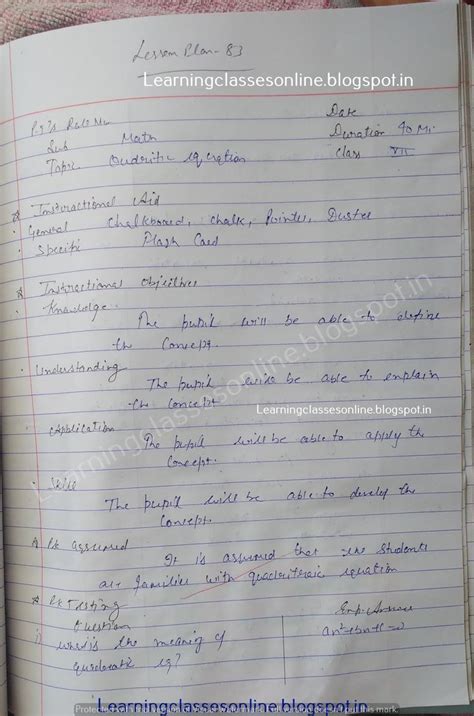 Lesson Plan - 83
Learningclassesonline.blogspot.in
Date
P.T's Roll No.
Duration 40 Mi.
Sub Math
Class VII
Topic Quadritic equation
Instructional Aid
General Chalkboard, chalk, Pointer, Duster
Specific Flash Card
Instructional Objectives
Knowledge
The pupil will be able to define
the Concept.
Understanding
The pupil will be able to explain
the concept
Learningclassesonline.blogspot.in
Application
The pupil will be able to apply the
Concept.
Skill
The pupil will be able to develop the
Concept.
Pk assumed
It is assumed that the students
are familier with equation
Pk Testing
Question
Exp. Answer
i) the meaning of
eq?
Learningclassesonline.blogspot.in
Learningclassesonline.blogspot.in